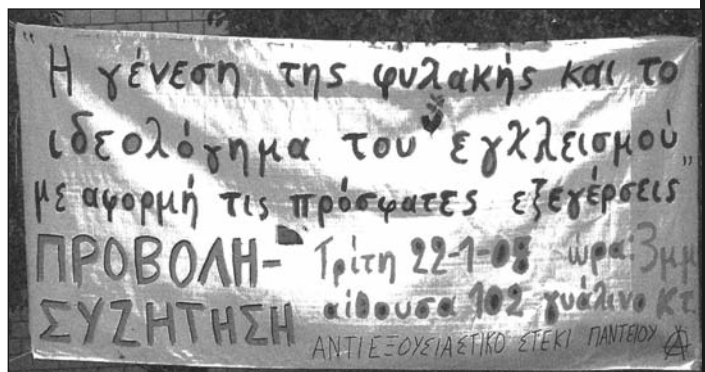 "Η γένεση της φυλακής και το
ιδεολόγημα του εγκλεισμού"
με αφορμή τις πρόσφατες εξεγέρσεις
ΠΡΟΒΟΛΗ-
ΣΥΖΗΤΗΣΗ
Τρίτη 22-1-08 ώρα: 3μμ
αίθουσα 102 γυάλινο κτ.
ΑΝΤΙΕΞΟΥΣΙΑΣΤΙΚΟ ΣΤΕΚΙ ΠΑΝΤΕΙΟΥ